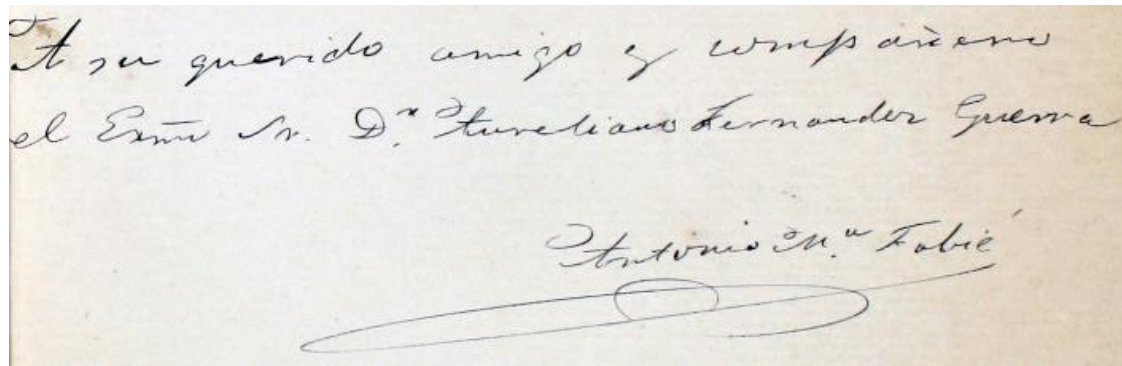 A su querido amigo y compañero
el Exmo Sr. D.n Aureliano Fernandez Guerra
Antonio M.a Fabié